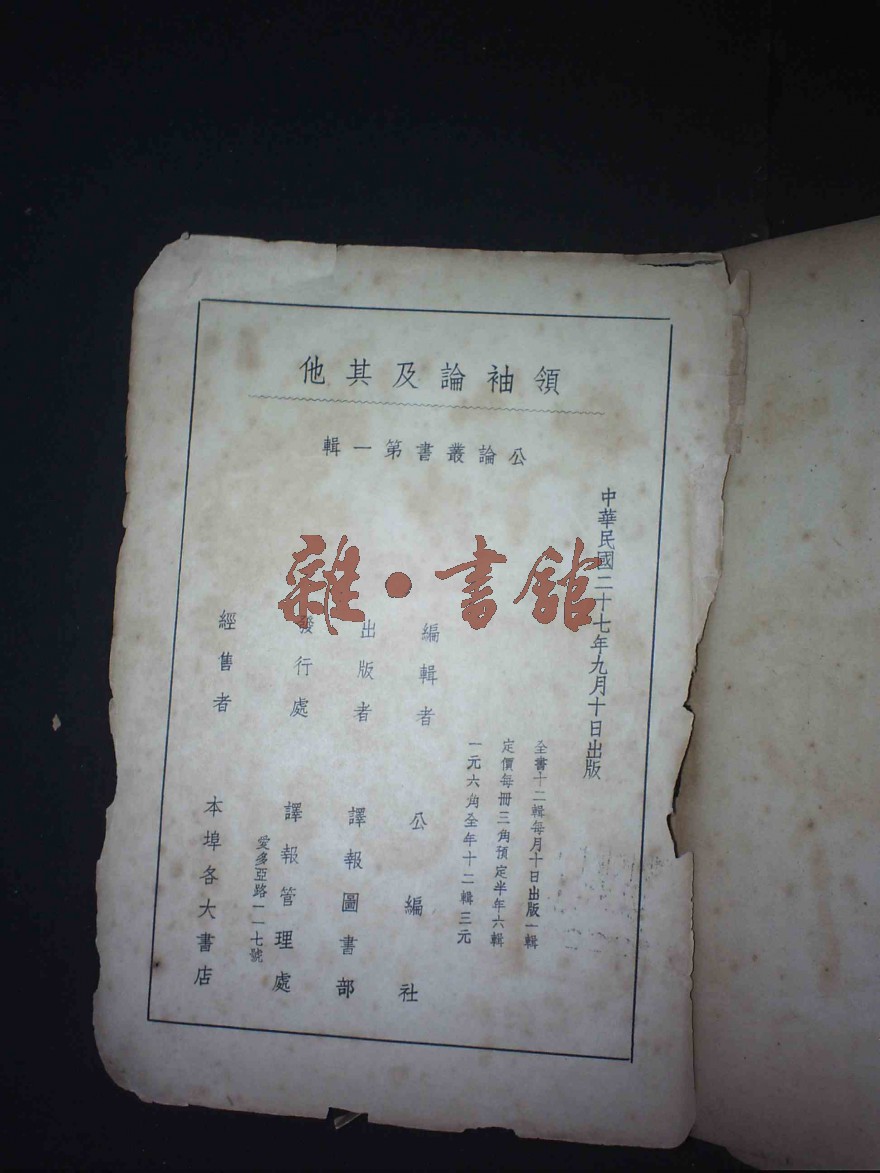 領袖論及其他
公論叢書第一輯
中華民國二十七年九月十日出版
全書十二輯每月十日出版一輯
定價每冊三角預定半年六輯
一元六角全年十二輯三元
編輯者 公編社
出版者 譯報圖書部
發行處 譯報管理處
愛多亞路一一七號
經售者 本埠各大書店
雜·書館